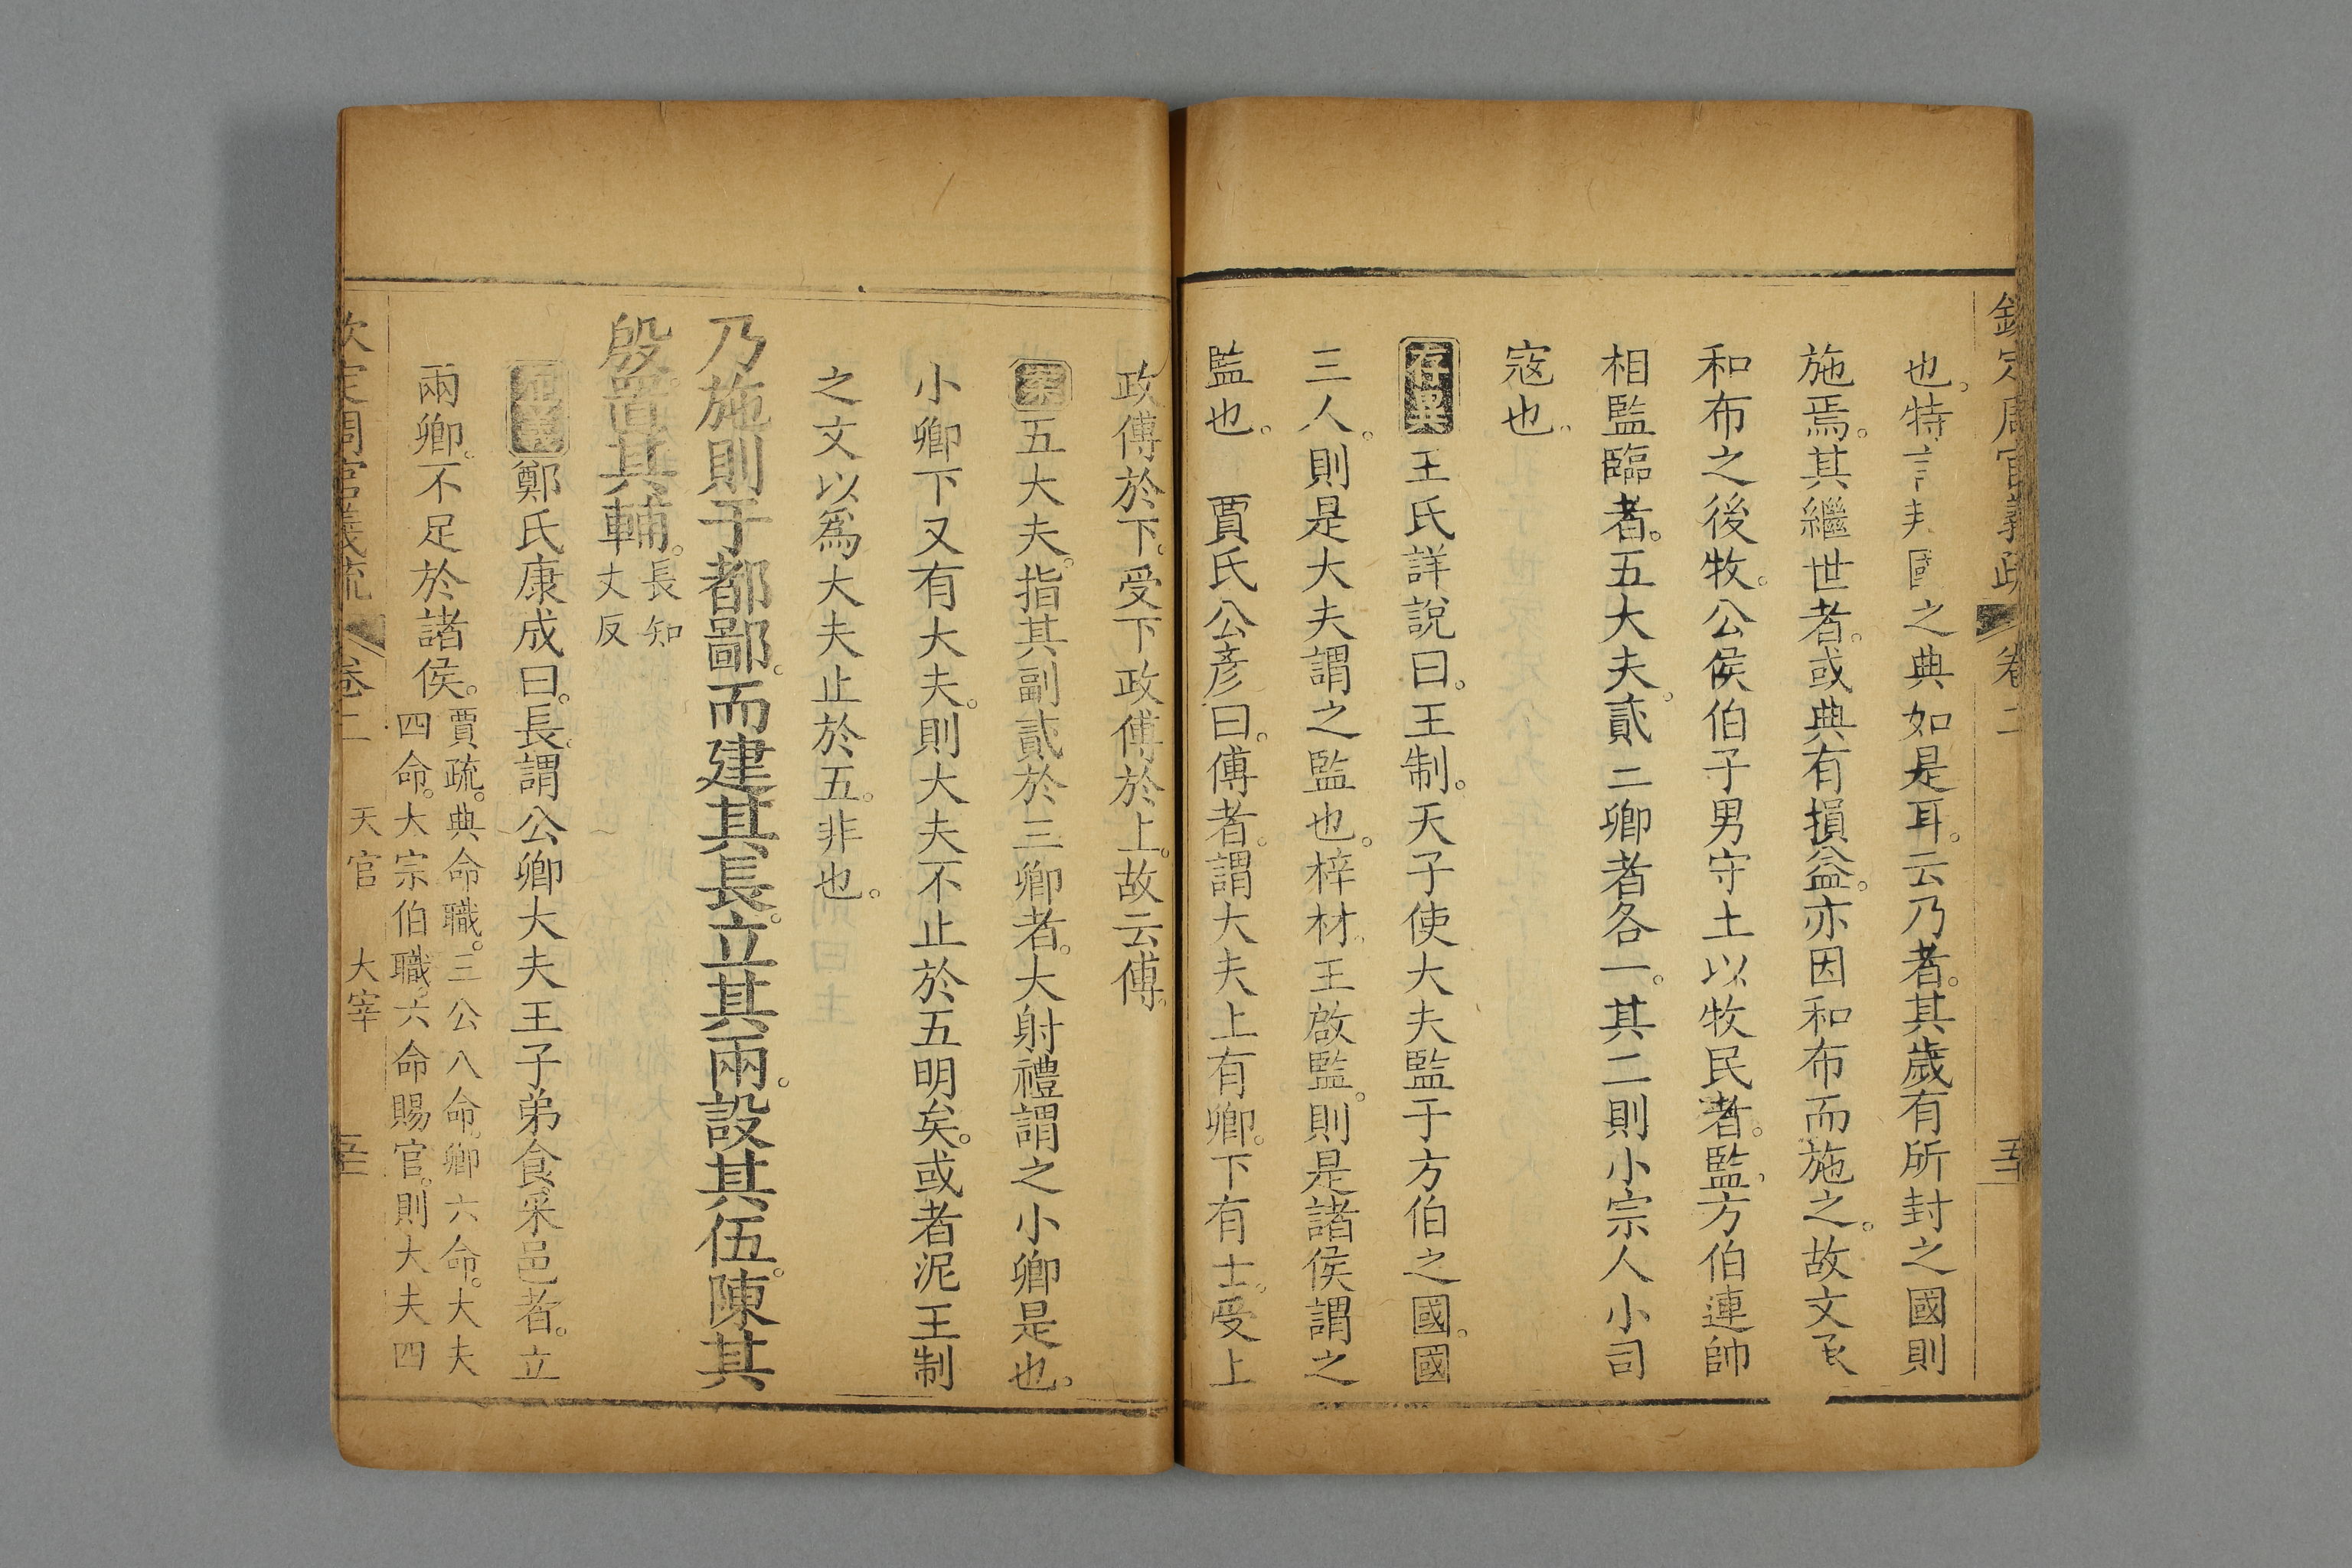 欽定周官義疏 卷二
也。特言夫國之典如是耳。云乃者。其歲有所封之國則
施焉。其繼世者。或典有損益。亦因和布而施之。故文承
和布之後。牧。公侯伯子男守土以牧民者。監。方伯連帥
相監臨者。五大夫。貳二卿者各一。其二則小宗人小司
寇也。
存異王氏詳說曰。王制。天子使大夫監于方伯之國。國
三人。則是大夫謂之監也。梓材。王啟監。則是諸侯謂之
監也。 賈氏公彥曰。傅者。謂大夫上有卿。下有士。受上
政傅於下。受下政傅於上。故云傅。
案五大夫。指其副貳於三卿者。大射禮謂之小卿是也。
小卿下又有大夫。則大夫不止於五明矣。或者泥王制
之文以爲大夫止於五。非也。
乃施則于都鄙。而建其長。立其兩。設其伍。陳其
殷。置其輔。長知丈反
鄭氏康成曰。長。謂公卿大夫王子弟食采邑者。立
兩卿。不足於諸侯。賈疏。典命職。三公八命。卿六命。大夫
四命。大宗伯職。六命賜官。則大夫四
欽定周官義疏 卷二 天官 大宰